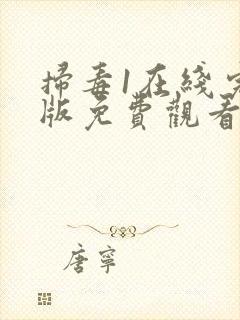 掃毒1在綫
版免費觀看
唐寧